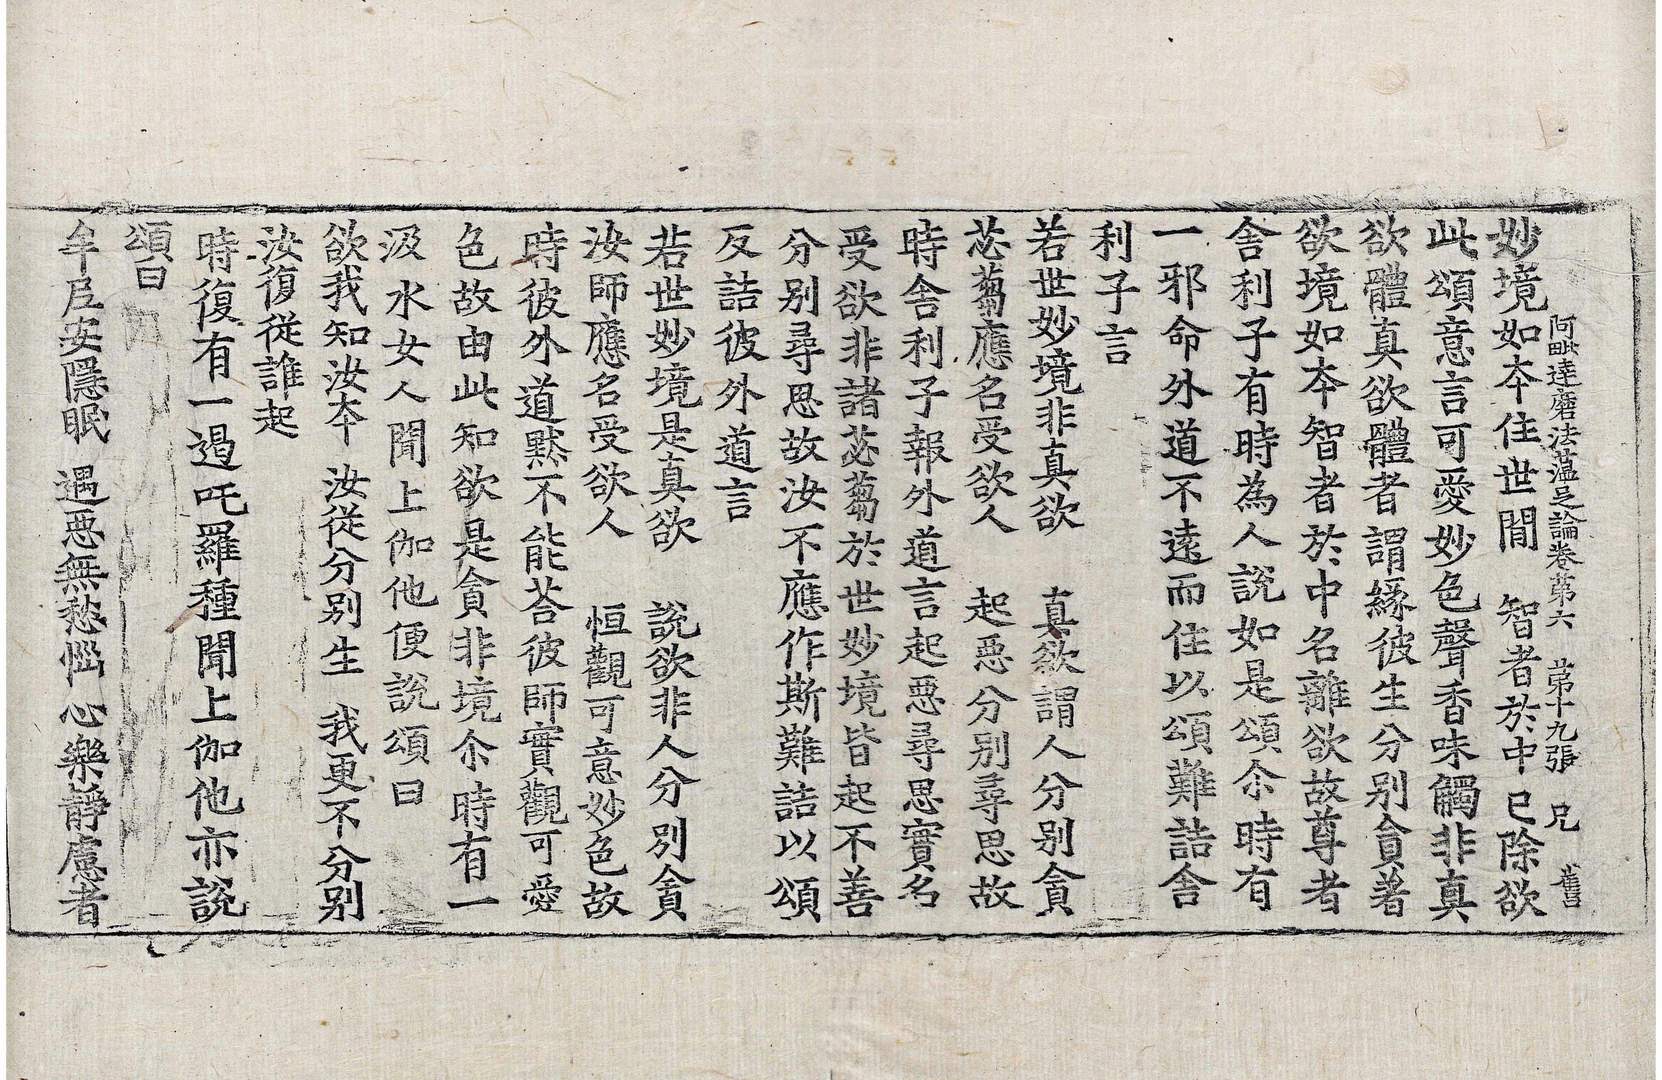 阿毗達磨法蘊足論卷第六　第十九張　兄
妙境如本住世間　智者於中已除欲
此頌意言可愛妙色聲香味觸非真
欲體真欲體者謂緣彼生分別貪著
欲境如本智者於中名離欲故尊者
舍利子有時為人說如是頌尒時有
一邪命外道不遠而住以頌難詰舍
利子言
若世妙境非真欲　真欲謂人分別貪
苾蒭應名受欲人　起惡分別尋思故
時舍利子報外道言起惡尋思實名
受欲非諸苾蒭於世妙境皆起不善
分別尋思故汝不應作斯難詰以頌
反詰彼外道言
若世妙境是真欲　說欲非人分別貪
汝師應名受欲人　恒觀可意妙色故
時彼外道默不能荅彼師實觀可愛
色故由此知欲是貪非境尒時有一
汲水女人聞上伽他便說頌曰
欲我知汝本　汝從分別生　我更不分別
汝復從誰起
時復有一遏吒羅種聞上伽他亦說
頌曰
牟尼安隱眠　遇惡無愁惱　心樂靜慮者